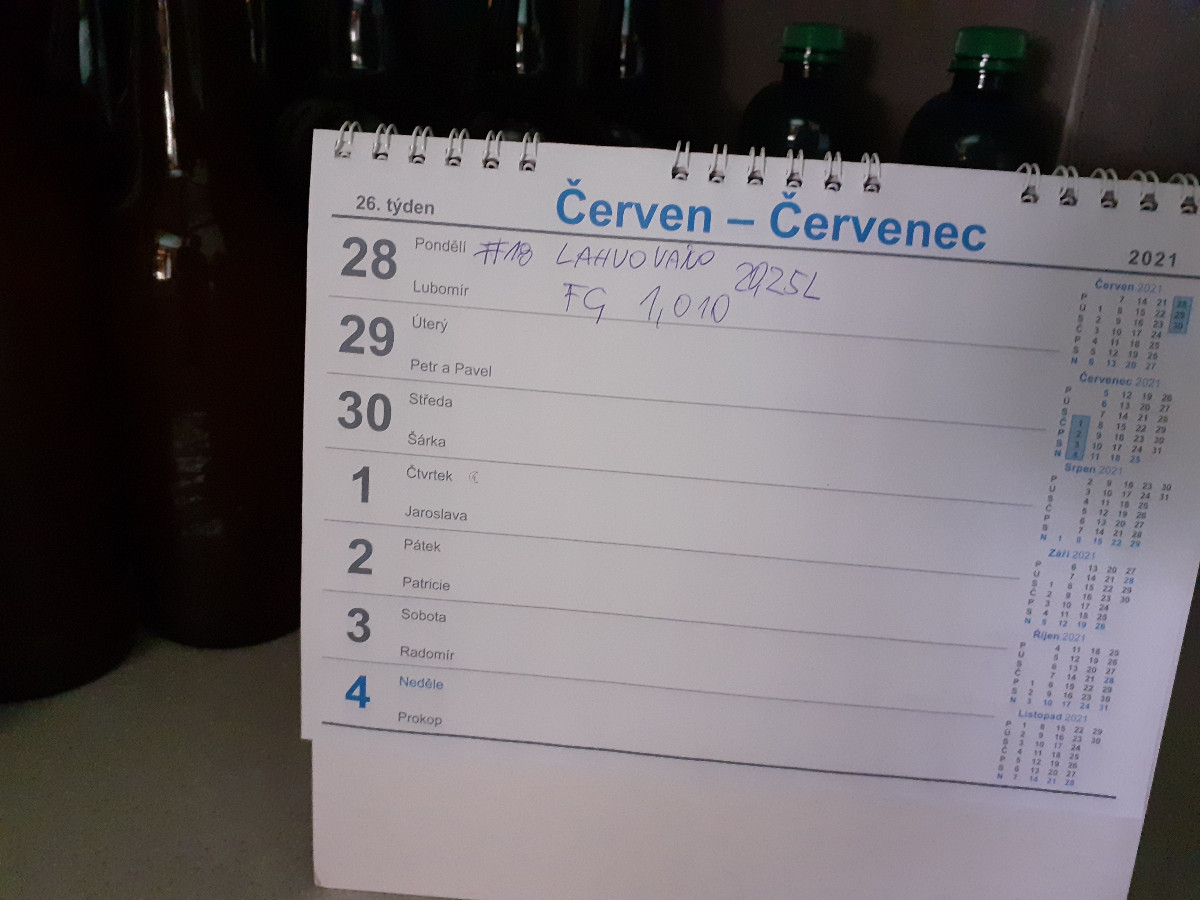 26. týden
Červen – Červenec
2021
28 Pondělí #18 LAHVOVÁNO
Lubomír FG 1,010
29 Úterý
Petr a Pavel
30 Středa
Šárka
1 Čtvrtek
Jaroslava
2 Pátek
Patricie
3 Sobota
Radomír
4 Neděle
Prokop
Červen 2021
P 7 14 21 28
Ú 1 8 15 22 29
S 2 9 16 23 30
Č 3 10 17 24
P 4 11 18 25
S 5 12 19 26
N 6 13 20 27
Červenec 2021
P 5 12 19 26
Ú 6 13 20 27
S 7 14 21 28
Č 1 8 15 22 29
P 2 9 16 23 30
S 3 10 17 24 31
N 4 11 18 25
Srpen 2021
P 2 9 16 23 30
Ú 3 10 17 24 31
S 4 11 18 25
Č 5 12 19 26
P 6 13 20 27
S 7 14 21 28
N 1 8 15 22 29
Září 2021
P 6 13 20 27
Ú 7 14 21 28
S 1 8 15 22 29
Č 2 9 16 23 30
P 3 10 17 24
S 4 11 18 25
N 5 12 19 26
Říjen 2021
P 4 11 18 25
Ú 5 12 19 26
S 6 13 20 27
Č 7 14 21 28
P 1 8 15 22 29
S 2 9 16 23 30
N 3 10 17 24 31
Listopad 2021
P 1 8 15 22 29
Ú 2 9 16 23 30
S 3 10 17 24
Č 4 11 18 25
P 5 12 19 26
S 6 13 20 27
N 7 14 21 28